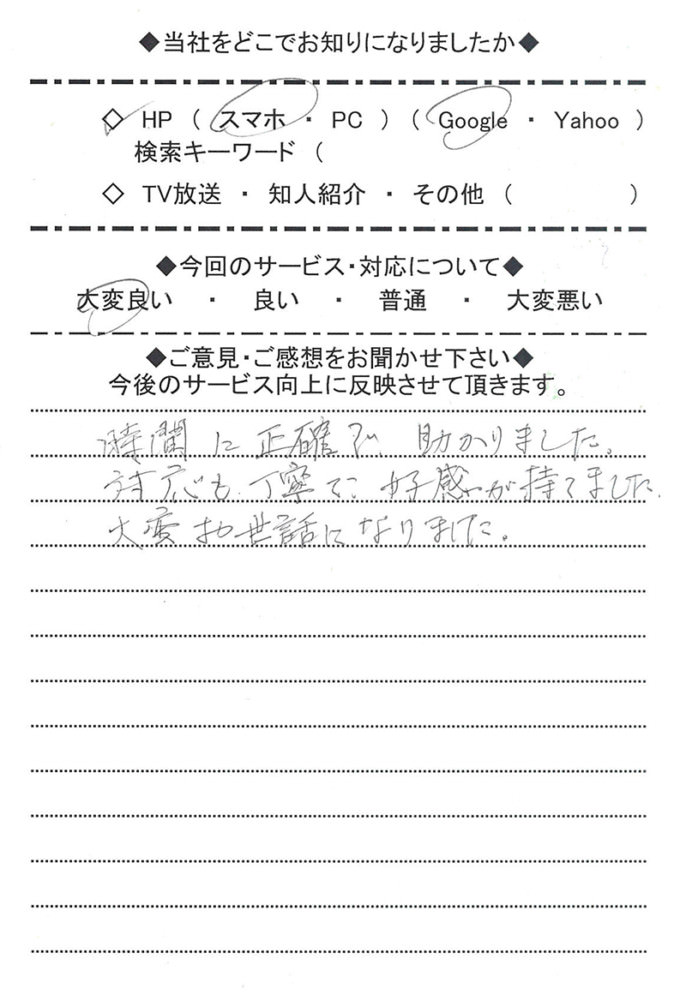 ◆当社をどこでお知りになりましたか◆
◇ HP ( スマホ ・ PC ) ( Google ・ Yahoo )
検索キーワード (
◇ TV放送 ・ 知人紹介 ・ その他 ( )
◆今回のサービス・対応について◆
大変良い ・ 良い ・ 普通 ・ 大変悪い
◆ご意見・ご感想をお聞かせ下さい◆
今後のサービス向上に反映させて頂きます。
時間に正確で、助かりました。
対応も、丁寧で、好感が持てました。
大変お世話になりました。